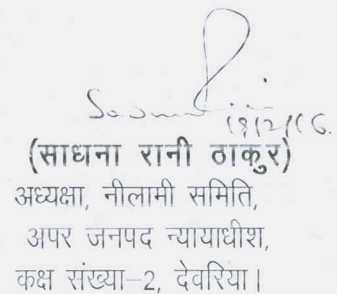 18/2/16.
(साधना रानी ठाकुर)
अध्यक्षा, नीलामी समिति,
अपर जनपद न्यायाधीश,
कक्ष संख्या-2, देवरिया।